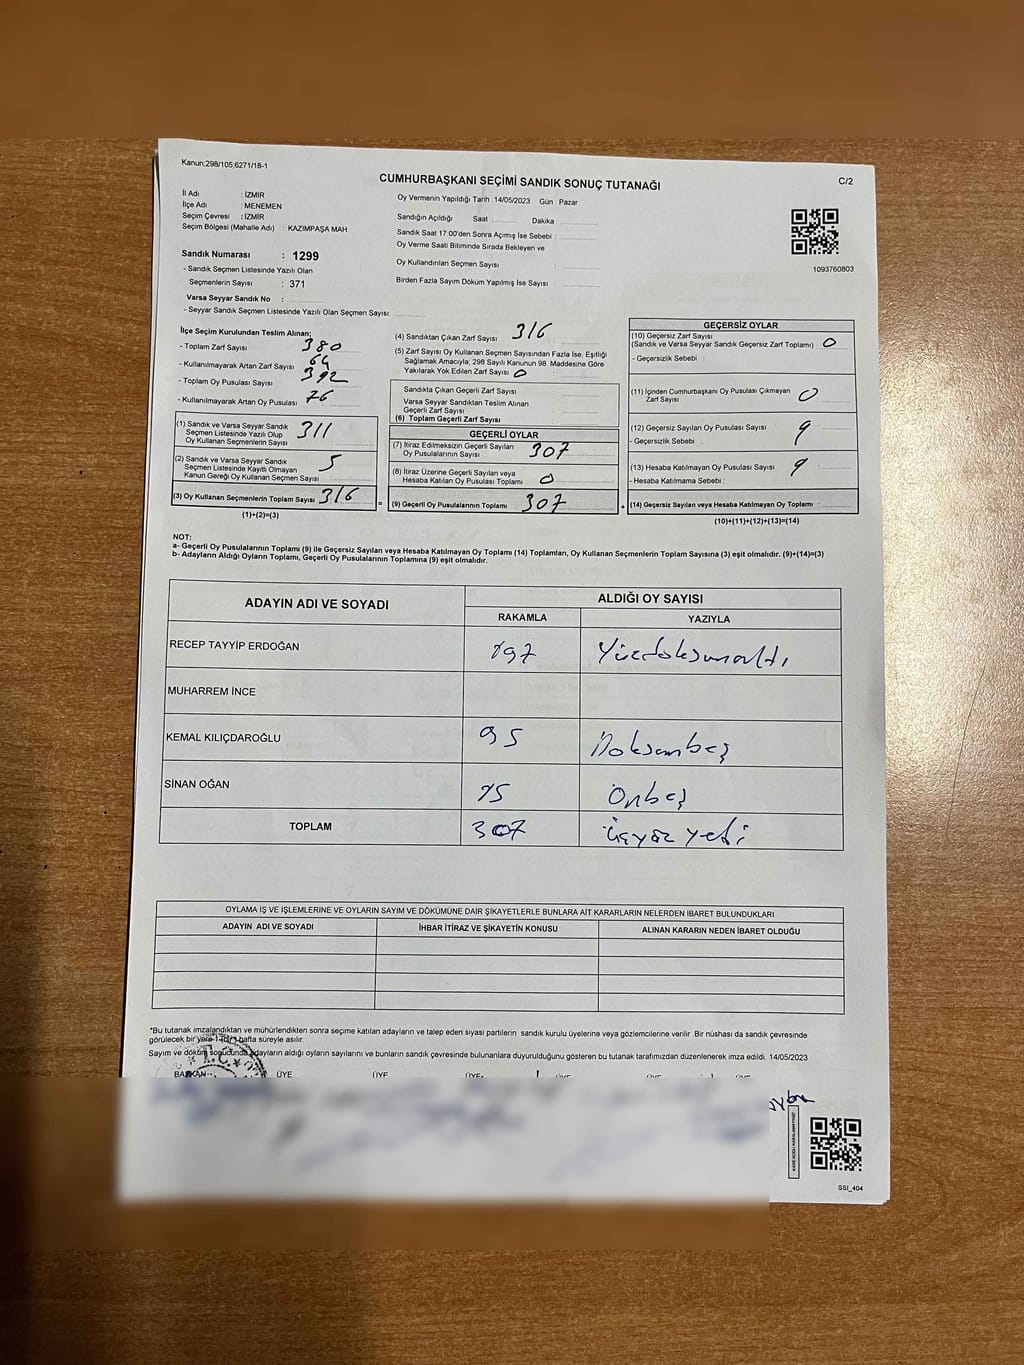 Kanun;298/105;6271/18-1
CUMHURBAŞKANI SEÇİMİ SANDIK SONUÇ TUTANAĞI
C/2
İl Adı : İZMİR
İlçe Adı : MENEMEN
Seçim Çevresi : İZMİR
Seçim Bölgesi (Mahalle Adı) : KAZIMPAŞA MAH.
Sandık Numarası : 1299
- Sandık Seçmen Listesinde Yazılı Olan
Seçmenlerin Sayısı : 371
Varsa Seyyar Sandık No :
- Seyyar Sandık Seçmen Listesinde Yazılı Olan Seçmen Sayısı
Oy Vermenin Yapıldığı Tarih :14/05/2023 Gün : Pazar
Sandığın Açıldığı Saat Dakika :
Sandık Saat 17:00'den Sonra Açımış İse Sebebi :
Oy Verme Saati Bitiminde Sırada Bekleyen ve
Oy Kullandırılan Seçmen Sayısı :
Birden Fazla Sayım Döküm Yapılmış İse Sayısı :
1093760803
İlçe Seçim Kurulundan Teslim Alınan;
- Toplam Zarf Sayısı 380
- Kullanılmayarak Artan Zarf Sayısı 64
- Toplam Oy Pusulası Sayısı 392
- Kullanılmayarak Artan Oy Pusulası 76
(1) Sandık ve Varsa Seyyar Sandık
Seçmen Listesinde Yazılı Olup
Oy Kullanan Seçmenlerin Sayısı 311
(2) Sandık ve Varsa Seyyar Sandık
Seçmen Listesinde Kayıtlı Olmayan
Kanun Gereği Oy Kullanan Seçmen Sayısı 5
(3) Oy Kullanan Seçmenlerin Toplam Sayısı 316
(1)+(2)=(3)
(4) Sandıktan Çıkan Zarf Sayısı 316
(5) Zarf Sayısı Oy Kullanan Seçmen Sayısından Fazla İse, Eşitliği
Sağlamak Amacıyla; 298 Sayılı Kanunun 98. Maddesine Göre
Yakılarak Yok Edilen Zarf Sayısı 0
Sandıkta Çıkan Geçerli Zarf Sayısı :
Varsa Seyyar Sandıktan Teslim Alınan
Geçerli Zarf Sayısı :
(6) Toplam Geçerli Zarf Sayısı :
GEÇERLİ OYLAR
(7) İtiraz Edilmeksizin Geçerli Sayılan
Oy Pusulalarının Sayısı 307
(8) İtiraz Üzerine Geçerli Sayılan veya
Hesaba Katılan Oy Pusulası Toplamı 0
= (9) Geçerli Oy Pusulalarının Toplamı 307
GEÇERSİZ OYLAR
(10) Geçersiz Zarf Sayısı
(Sandık ve Varsa Seyyar Sandık Geçersiz Zarf Toplamı) : 0
- Geçersizlik Sebebi :
(11) İçinden Cumhurbaşkanı Oy Pusulası Çıkmayan
Zarf Sayısı 0
(12) Geçersiz Sayılan Oy Pusulası Sayısı 9
- Geçersizlik Sebebi :
(13) Hesaba Katılmayan Oy Pusulası Sayısı 9
- Hesaba Katılmama Sebebi :
+ (14) Geçersiz Sayılan veya Hesaba Katılmayan Oy Toplamı :
(10)+(11)+(12)+(13)=(14)
NOT:
a- Geçerli Oy Pusulalarının Toplamı (9) ile Geçersiz Sayılan veya Hesaba Katılmayan Oy Toplamı (14) Toplamları, Oy Kullanan Seçmenlerin Toplam Sayısına (3) eşit olmalıdır. (9)+(14)=(3)
b- Adayların Aldığı Oyların Toplamı, Geçerli Oy Pusulalarının Toplamına (9) eşit olmalıdır.
ADAYIN ADI VE SOYADI ALDIĞI OY SAYISI
RAKAMLA YAZIYLA
RECEP TAYYİP ERDOĞAN 197 Yüzdoksanaltı
MUHARREM İNCE
KEMAL KILIÇDAROĞLU 95 Doksanbeş
SİNAN OĞAN 15 Onbeş
TOPLAM 307 üçyüz yedi
OYLAMA İŞ VE İŞLEMLERİNE VE OYLARIN SAYIM VE DÖKÜMÜNE DAİR ŞİKAYETLERLE BUNLARA AİT KARARLARIN NELERDEN İBARET BULUNDUKLARI
ADAYIN ADI VE SOYADI İHBAR İTİRAZ VE ŞİKAYETİN KONUSU ALINAN KARARIN NEDEN İBARET OLDUĞU
*Bu tutanak imzalandıktan ve mühürlendikten sonra seçime katılan adayların ve talep eden siyasi partilerin sandık kurulu üyelerine veya gözlemcilerine verilir .Bir nüshası da sandık çevresinde
görülecek bir yere 1 (bir) hafta süreyle asılır.
Sayım ve döküm sonucunda adayların aldığı oyların sayılarını ve bunların sandık çevresinde bulunanlara duyurulduğunu gösteren bu tutanak tarafımızdan düzenlenerek imza edildi. 14/05/2023
BAŞKAN ÜYE ÜYE ÜYE ÜYE ÜYE ÜYE
T.C.
SSI_404